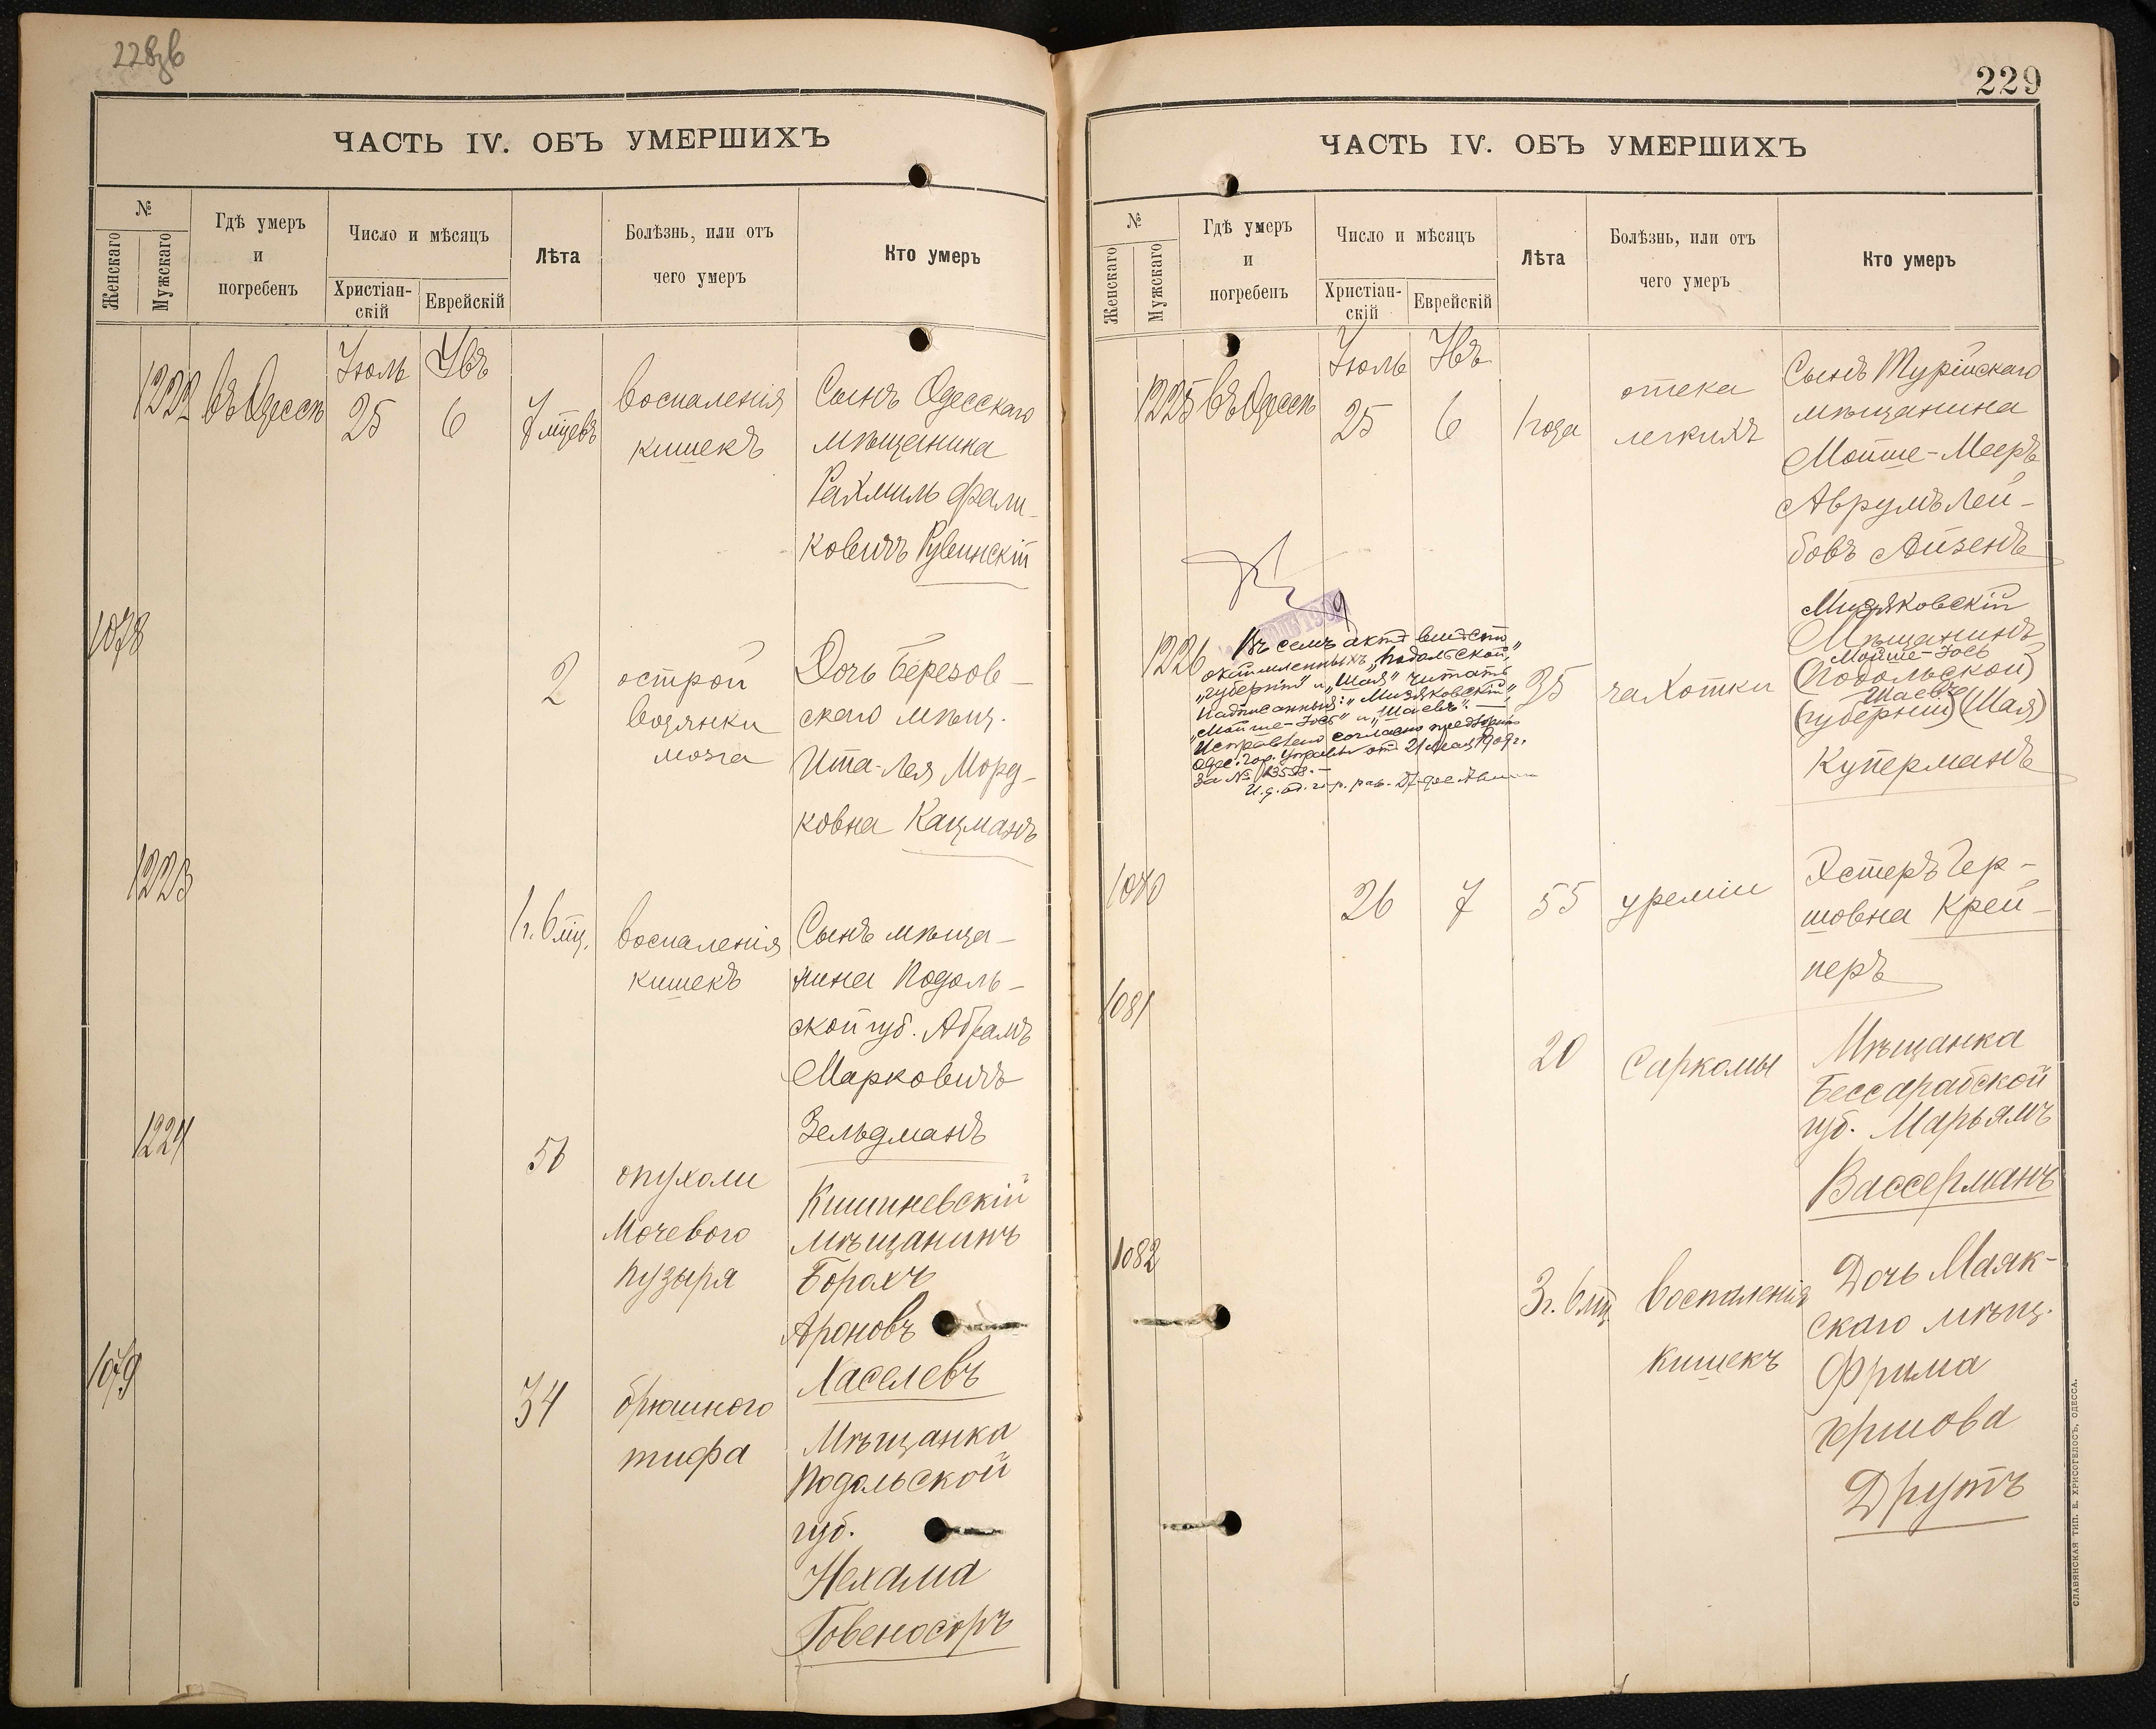 228об
ЧАСТЬ IV. ОБЪ УМЕРШИХЪ
№
Женскаго
Мужскаго
Гдѣ умеръ
и
погребенъ
Число и мѣсяцъ
Христіан-
скій
Еврейскій
Лѣта
Болѣзнь, или отъ
чего умеръ
Кто умеръ
1222
въ Одессѣ
Іюль
25
Увъ
6
7 мцевъ
воспаленія
кишекъ
Сынъ Одесскаго
мѣщанина
Рахмиль Фали-
ковичъ Рувинскій
1078
2
острой
водянки
мозга
Дочь Березов-
скаго мѣщ.
Ита-Лея Морд-
ковна Кацманъ
1223
1 г. 6 мц.
воспаленія
кишекъ
Сынъ мѣща-
нина Подоль-
ской губ. Абрамъ
Марковичъ
Зельдманъ
1224
56
опухоли
мочевого
пузыря
Кишиневскій
мѣщанинъ
Борохъ
Ароновъ
Хаселевъ
1079
34
брюшного
тифа
Мѣщанка
Подольской
губ.
Нехама
Говеносоръ
229
ЧАСТЬ IV. ОБЪ УМЕРШИХЪ
№
Женскаго
Мужскаго
Гдѣ умеръ
и
погребенъ
Число и мѣсяцъ
Христіан-
скій
Еврейскій
Лѣта
Болѣзнь, или отъ
чего умеръ
Кто умеръ
1225
въ Одессѣ
Іюль
25
Увъ
6
1 года
отека
легкихъ
Сынъ Турійскаго
мѣщанина
Мойше-Мееръ
Аврумъ Лей-
бовъ Айзенъ
1226
Въ семъ актѣ вмѣсто
окаймленныхъ „Подольской,"
„губерніи" и „Шая" читать
надписанныя: „Мизяковскій"
„Мойше-Іось" и „Шаевъ". —
Исправлено согласно предпис.
Одес. Гор. Управы от 21 мая 1909 г.
за № 13558. —
35
чахотки
Мизяковскій
Мѣщанинъ
Мойше-Іось
(Подольской)
Шаевъ
(губерніи) (Шая)
Куперманъ
1080
26
7
55
уреміи
Эстеръ Гер-
шовна Крей-
перъ
1081
20
Саркомы
Мѣщанка
Бессарабской
губ. Марьямъ
Вассерманъ
1082
3 г. 6 мц.
воспаленія
кишекъ
Дочь Маяк-
скаго мѣщ.
Фрима
Хршова
Друтъ
СЛАВЯНСКАЯ ТИП. Е. ХРИСОГЕЛОСЪ, ОДЕССА.